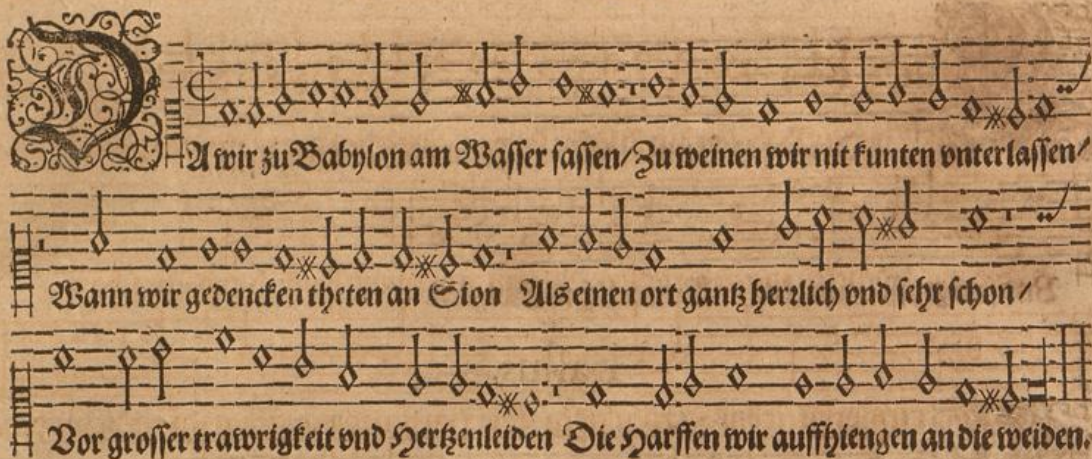 DA wir zu Babylon am Wasser sassen/ Zu weinen wir nit kunten vnterlassen/
Wann wir gedencken theten an Sion Als einen ort gantz herrlich vnd sehr schon/
Vor grosser trawrigkeit vnd Hertzenleiden Die Harffen wir auffhiengen an die weiden.